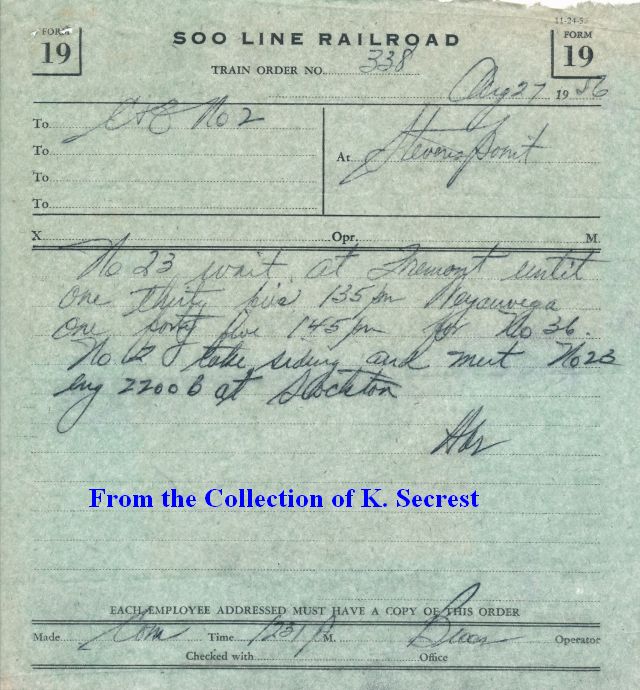 FORM 19
11-24-5
FORM 19
SOO LINE RAILROAD
TRAIN ORDER NO. 338
Aug 27 1956
To C&E No 2
To
To
To
At Stevens Point
X Opr. M.
No 23 wait at Fremont until
one thirty five 135 pm Weyauwega
one forty five 145 pm for No 36.
No 2 take siding and meet No 23
eng 2200 B at Stockton
From the Collection of K. Secrest
EACH EMPLOYEE ADDRESSED MUST HAVE A COPY OF THIS ORDER
Made Com Time 1231 P M. Operator
Checked with Office